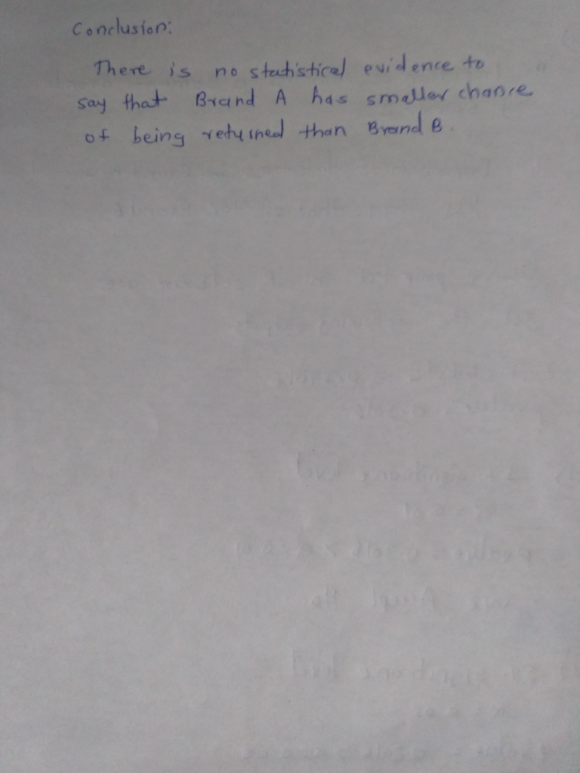 Conclusion:
There is no statistical evidence to
say that Brand A has smaller chance
of being returned than Brand B.